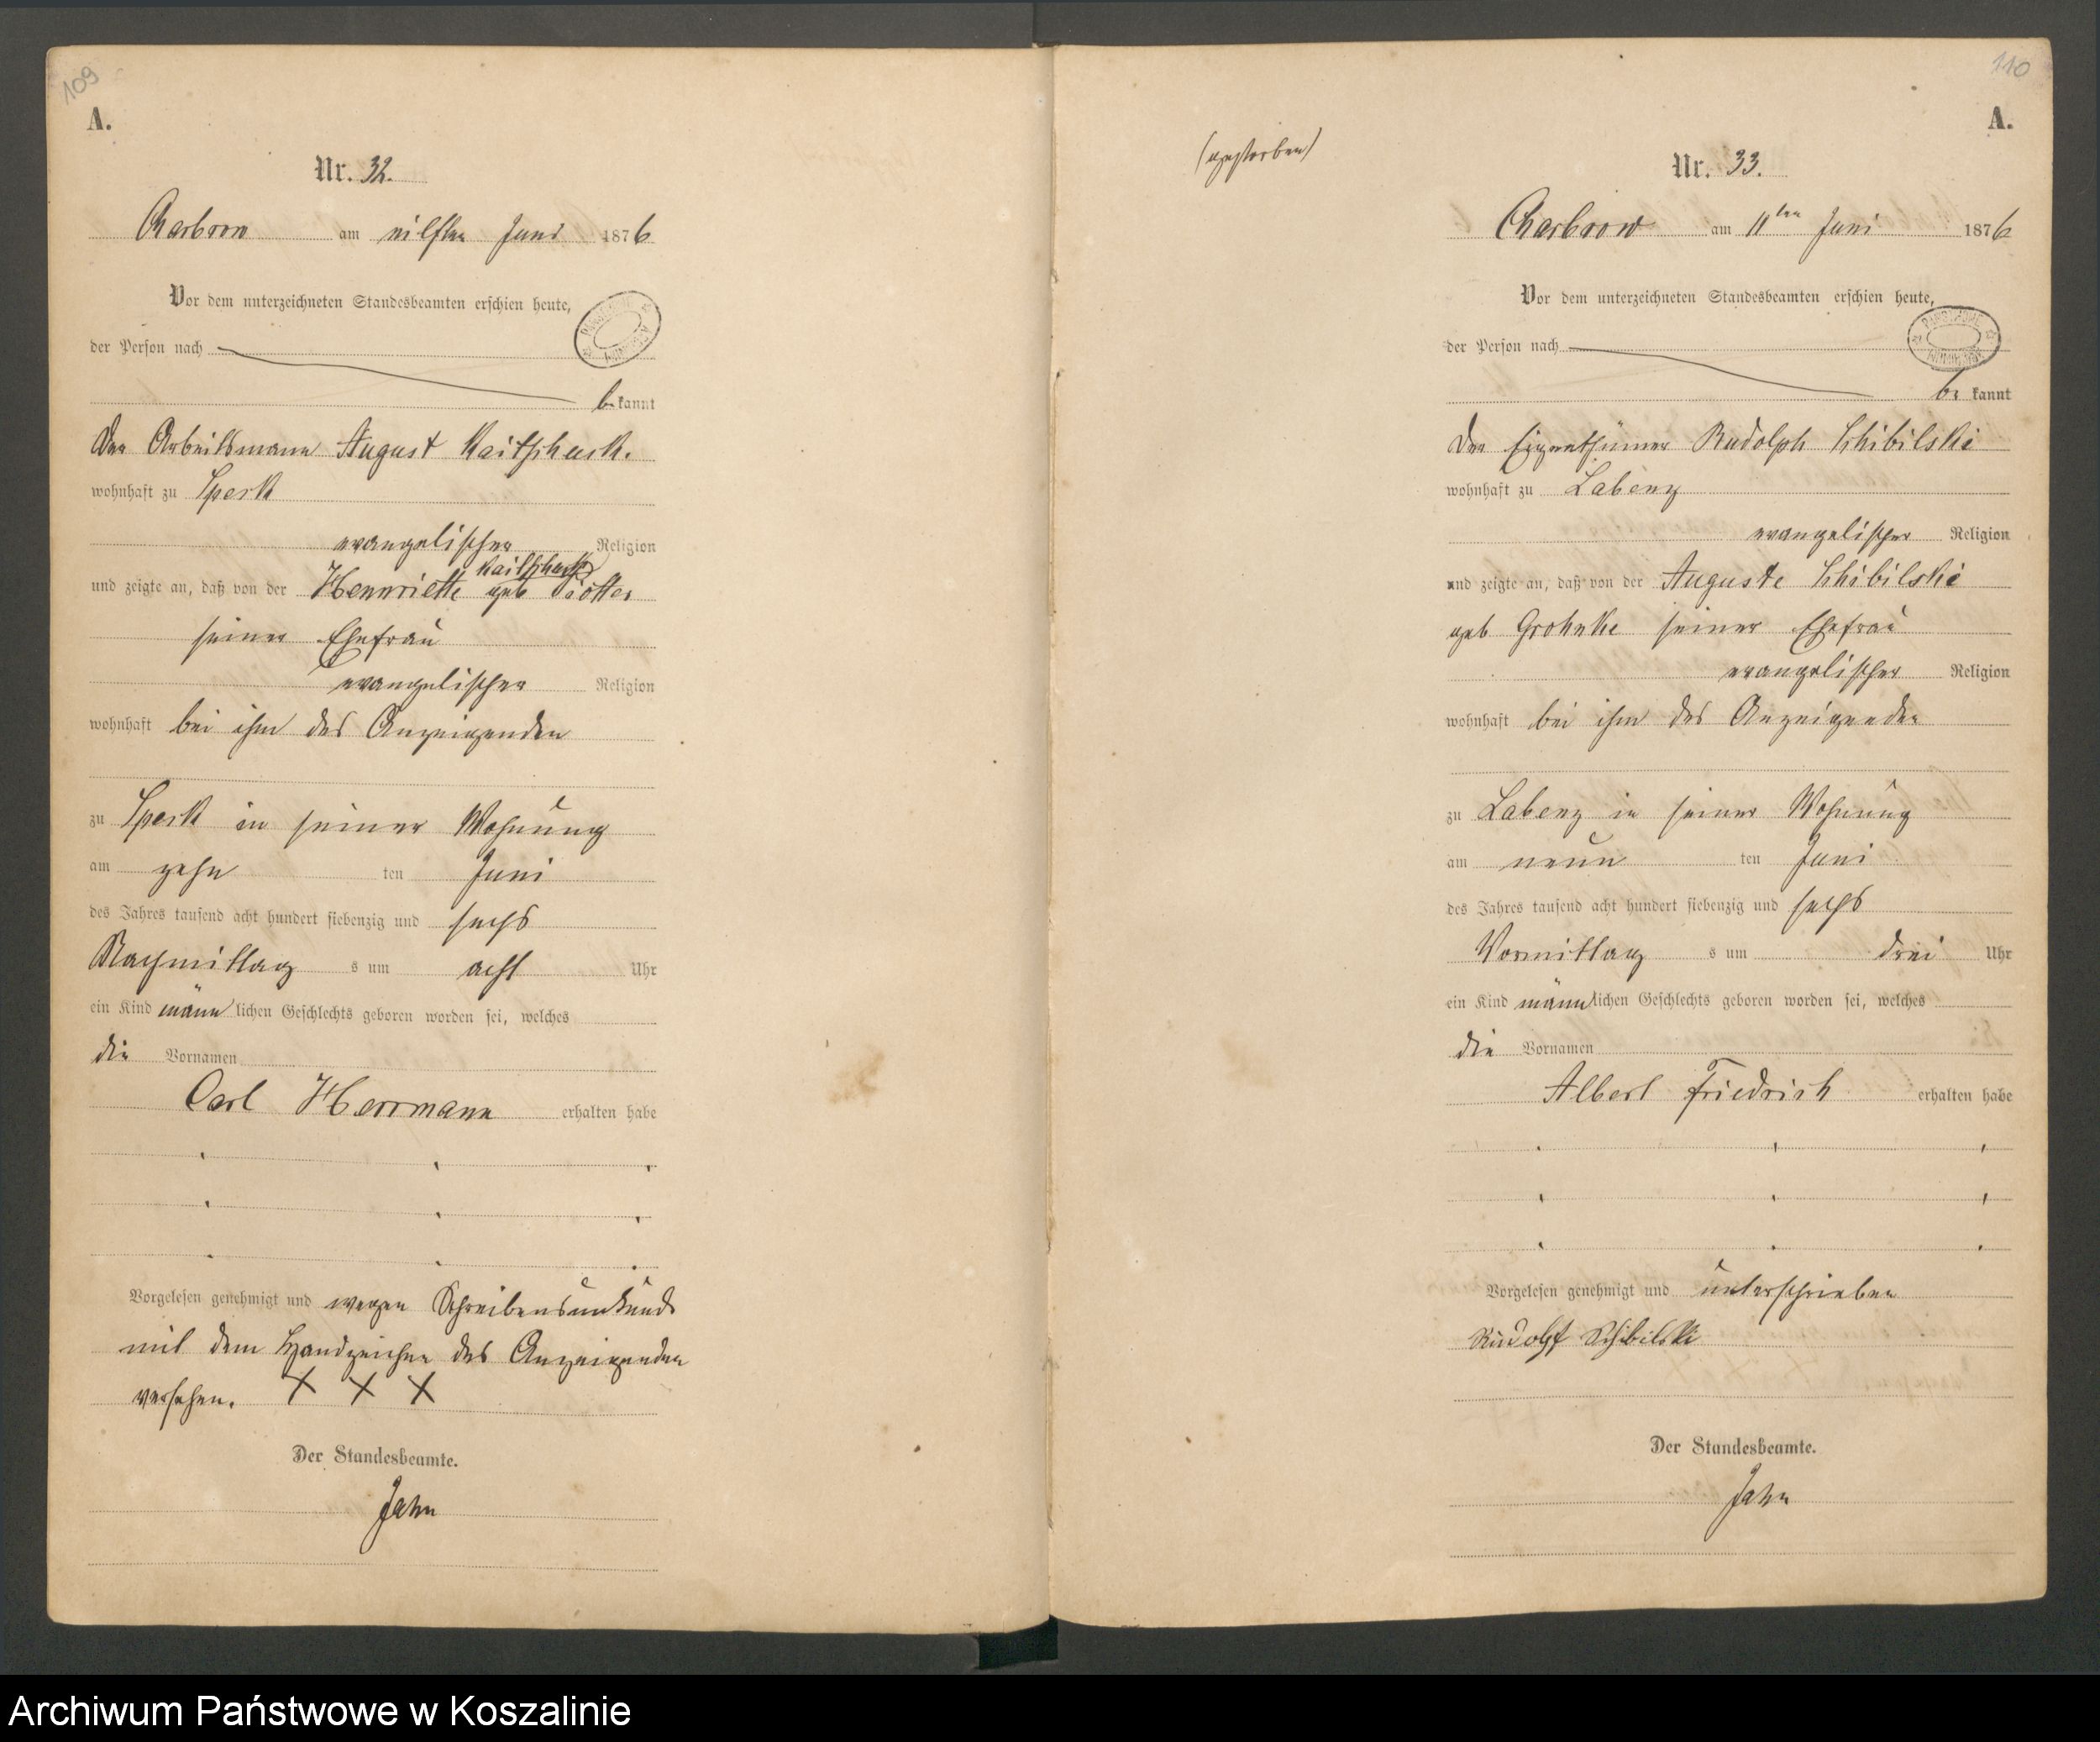 109
A.
Nr. 32.
Charbrow am eilften Juni 1876
Vor dem unterzeichneten Standesbeamten erschien heute,
der Person nach
be kannt
Der Arbeitsmann August Kaitschuck.
wohnhaft zu Speck
evangelischer Religion
Kaitschuck
und zeigte an, daß von der Hennriette geb
seiner Ehefrau
evangelischer Religion
wohnhaft bei ihm des Anzeigenden
zu Speck in seiner Wohnung
am zehn ten Juni
des Jahres tausend acht hundert siebenzig und sechs
Nachmittag s um acht Uhr
ein Kind männlichen Geschlechts geboren worden sei, welches
die Vornamen
Carl Herrmann erhalten habe
Vorgelesen genehmigt und wegen Schreibensunkunde
mit dem Handzeichen des Anzeigenden
versehen. X X X
Der Standesbeamte.
Jahn
110
A.
(gestorben)
Nr. 33.
Charbrow am 11ten Juni 1876
Vor dem unterzeichneten Standesbeamten erschien heute,
der Person nach
be kannt
Der Eigenthümer Rudolph Schibilski
wohnhaft zu Labenz
evangelischer Religion
und zeigte an, daß von der Auguste Schibilski
geb Grohnke seiner Ehefrau
evangelischer Religion
wohnhaft bei ihm des Anzeigenden
zu Labenz in seiner Wohnung
am neun ten Juni
des Jahres tausend acht hundert siebenzig und sechs
Vormittag s um drei Uhr
ein Kind männlichen Geschlechts geboren worden sei, welches
die Vornamen
Albert Friedrich erhalten habe
Vorgelesen genehmigt und unterschrieben
Rudolf Schibilski
Der Standesbeamte.
Jahn
Archiwum Państwowe w Koszalinie